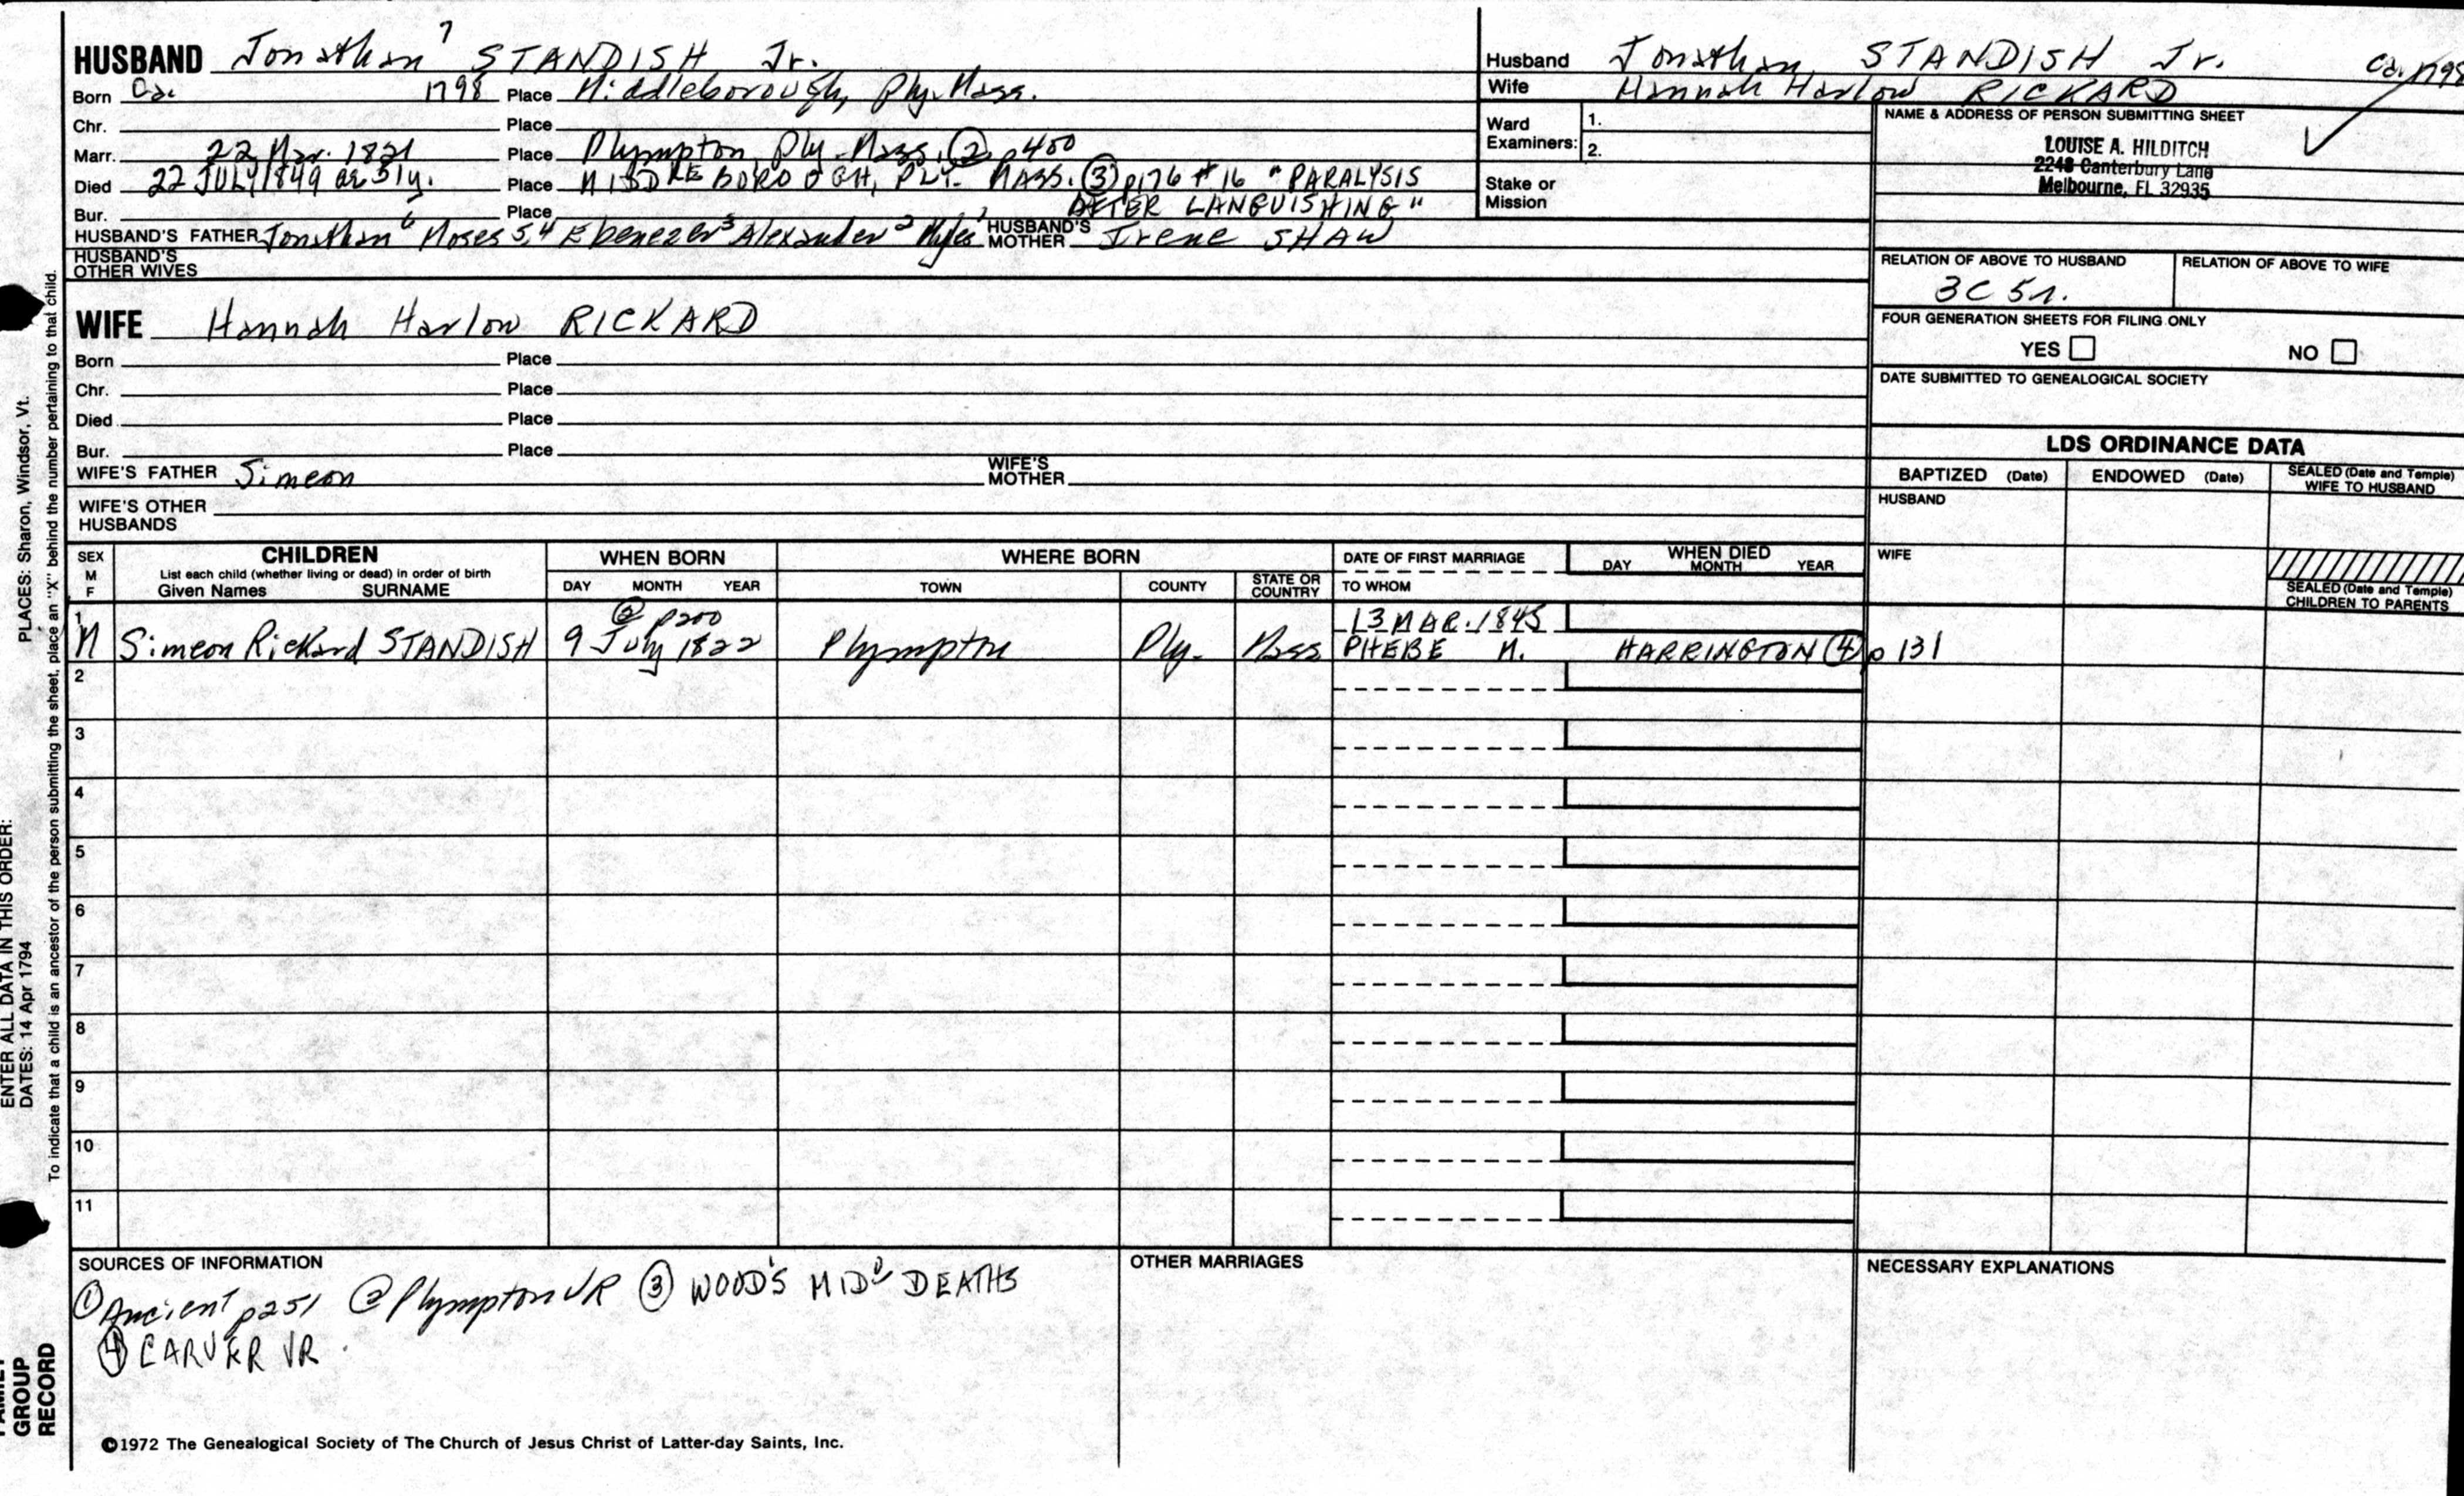 HUSBAND Jonathan 7 STANDISH Jr.
Born Ca. 1798 Place Middleborough, Ply. Mass.
Chr. Place
Marr. 22 Mar. 1821 Place Plympton, Ply. Mass. (2) p 400
Died 22 JULY 1849 ae 51y. Place MIDDLEBOROUGH, PLY. MASS. (3) p176 #16 "PARALYSIS
AFTER LANGUISHING"
Bur. Place
HUSBAND'S FATHER Jonathan 6 Moses 5,4 Ebenezer 3 Alexander 2 Myles 1 HUSBAND'S MOTHER Irene SHAW
HUSBAND'S OTHER WIVES
Husband Jonathan STANDISH Jr. Ca. 1798
Wife Hannah Harlow RICKARD
Ward Examiners: 1.
2.
Stake or Mission
NAME & ADDRESS OF PERSON SUBMITTING SHEET
LOUISE A. HILDITCH
2248 Canterbury Lane
Melbourne, FL 32935
RELATION OF ABOVE TO HUSBAND RELATION OF ABOVE TO WIFE
3C 5r.
FOUR GENERATION SHEETS FOR FILING ONLY
YES NO
DATE SUBMITTED TO GENEALOGICAL SOCIETY
WIFE Hannah Harlow RICKARD
Born Place
Chr. Place
Died Place
Bur. Place
WIFE'S FATHER Simeon WIFE'S MOTHER
WIFE'S OTHER HUSBANDS
LDS ORDINANCE DATA
BAPTIZED (Date) ENDOWED (Date) SEALED (Date and Temple) WIFE TO HUSBAND
HUSBAND
WIFE
SEALED (Date and Temple) CHILDREN TO PARENTS
SEX M F
CHILDREN
List each child (whether living or dead) in order of birth
Given Names SURNAME
WHEN BORN
DAY MONTH YEAR
WHERE BORN
TOWN COUNTY STATE OR COUNTRY
DATE OF FIRST MARRIAGE
TO WHOM
WHEN DIED
DAY MONTH YEAR
1 (2) p200 13 MAR. 1845
M Simeon Rickard STANDISH 9 July 1822 Plympton Ply. Mass PHEBE M. HARRINGTON (4) p 131
2
3
4
5
6
7
8
9
10
11
SOURCES OF INFORMATION
(1) Ancient p251 (2) Plympton VR (3) WOOD'S MIDD DEATHS
(4) CARVER VR.
OTHER MARRIAGES
NECESSARY EXPLANATIONS
©1972 The Genealogical Society of The Church of Jesus Christ of Latter-day Saints, Inc.
PLACES: Sharon, Windsor, Vt.
ENTER ALL DATA IN THIS ORDER:
DATES: 14 Apr 1794
To indicate that a child is an ancestor of the person submitting the sheet, place an "X" behind the number pertaining to that child.
FAMILY
GROUP
RECORD